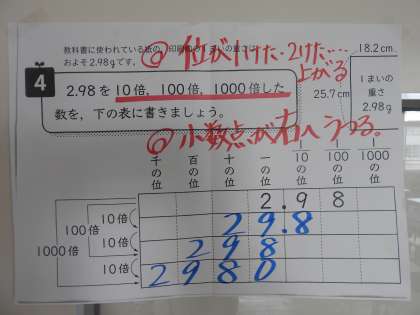 教科書に使われている紙の
およそ2.98gです。
位が1けた・2けた……
上がる
18.2cm
25.7cm
1まいの
重さ
2.98g
4
2.98を10倍，100倍，1000倍した
数を，下の表に書きましょう。
小数点が右へうつる。
千の位 百の位 十の位 一の位 1/10の位 1/100の位 1/1000の位
2.98
10倍 29.8
100倍 10倍 298
1000倍 10倍 2980